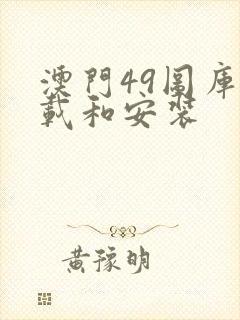 澳門49圖庫
載和安裝
黃豫明